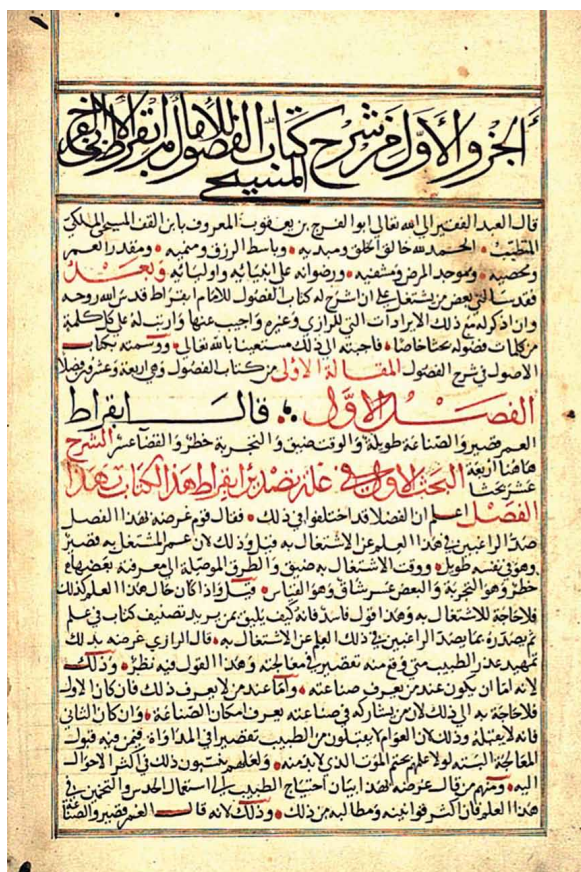 الجزو الأول من شرح كتاب الفصول للامام ابقراط لابي الفرج
المسيحي
قال العبد الفقير الى الله تعالى ابو الفرج بن يعقوب المعروف بابن القف المسيحي الملكي
المتطبب الحمد لله خالق الخلق ومبديه وباسط الرزق ومنميه ومقدر العمر
ومحصيه وموجد المرض ومشفيه ورضوانه على انبيائه واوليائه وبعد
فقد سألني بعض من يشتغل علي ان اشرح له كتاب الفصول للامام ابقراط قدس الله روحه
وان اذكر له مع ذلك الايرادات التي للرازي وغيره واجيب عنها وارتب له على كل كلمة
من كلمات فصوله بحثا خاصا فاجبته الى ذلك مستعينا بالله تعالى ووسمته بكتاب
الاصول في شرح الفصول المقالة الاولى من كتاب الفصول وهي اربعة وعشرون فصلا
الفصل الاول قال ابقراط
العمر قصير والصناعة طويلة والوقت ضيق والتجربة خطر والقضا عسر الشرح
هاهنا اربعة
عشر بحثا البحث الاول في علة تصدير ابقراط هذا الكتاب بهذا
الفصل اعلم ان الفضلا قد اختلفوا في ذلك فقال قوم غرضه بهذا الفصل
صد الراغبين في هذا العلم عن الاشتغال به قيل وذلك لان عمر المشتغل به قصير
وهو في نفسه طويل ووقت الاشتغال به ضيق والطرق الموصلة الى معرفته بعضها
خطر وهو التجربة والبعض عسر شاق وهو القياس قيل واذا كان حال هذا العلم كذلك
فلا حاجة للاشتغال به وهذا قول فاسد فانه كيف يليق بمن يريد تصنيف كتاب في علم
ثم يصدره بما يصد الراغبين في ذلك العلم عن الاشتغال به قال الرازي غرضه بذلك
تمهيد عذر الطبيب متى وقع منه تقصير في معالجته وهذا القول فيه نظر وذلك
لانه اما ان يكون عند من يعرف صناعته واما عند من لا يعرف ذلك فان كان الاول
فلا حاجة به الى ذلك لان من يشاركه في صناعته يعرف امكان الصناعة وان كان الثاني
فانه لا يقبله وذلك لان العوام لا يقبلون من الطبيب تقصيرا في المداواة فمن منه قبول
المعالجة البتة لولا علمهم بحتم الموت الذي لا بد منه ولعلهم ينسبون ذلك في اكثر الاحوال
اليه ومنهم من قال غرضه بهذا بيان احتياج الطبيب الى استعمال الحدس والتخمين في
هذا العلم فان اكثر قوانينه ومطالبه من ذلك وذلك لانه قال العمر قصير والصناعة